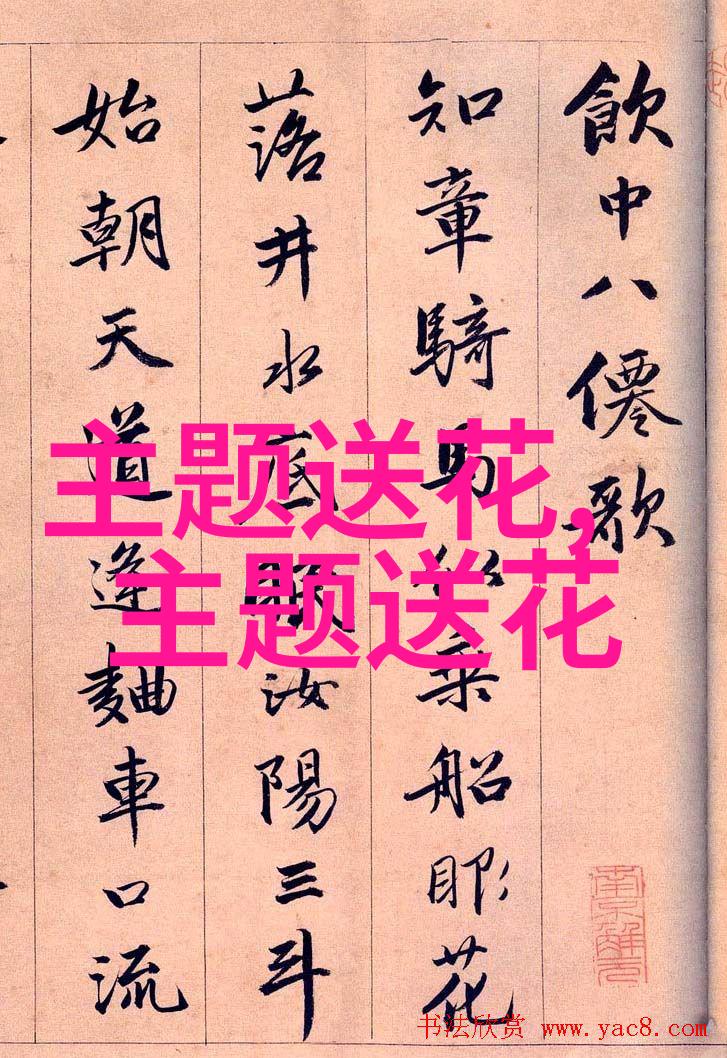 飲中八僊歌
知章騎馬似乘船眼花
落井水底眠汝陽三斗
始朝天道逢麯車口流
主题送花,
主题送花
南京解元
书法欣赏 www.yac8.com